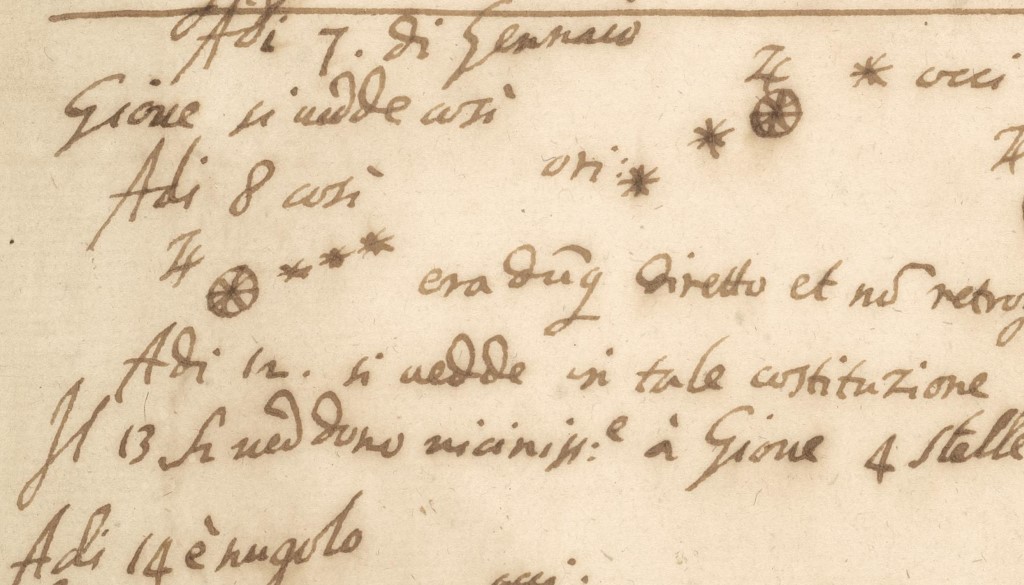 Adi 7. di Gennaio
Gioue si uedde così
♃ * occi
ori: * *
Adi 8 così
♃ * * * era dũq diretto et nõ retrog
Adi 12. si uedde in tale costituzione
Il 13 si ueddono uiciniss:e à Gioue 4 stelle
Adi 14 è nugolo
occi.